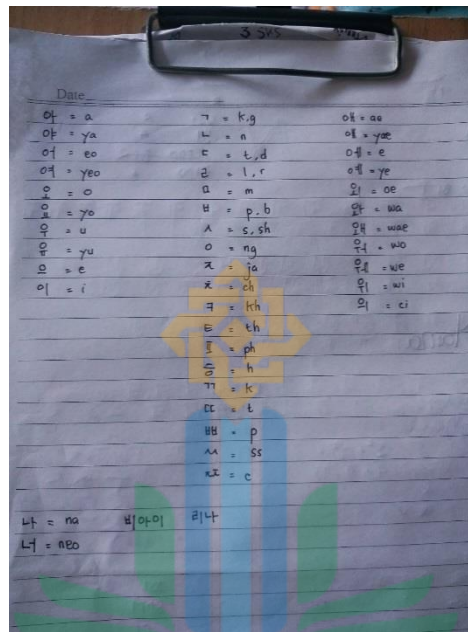 3 SKS
Date
아 = a
야 = ya
어 = eo
여 = yeo
오 = o
요 = yo
우 = u
유 = yu
으 = e
이 = i
ㄱ = k,g
ㄴ = n
ㄷ = t,d
ㄹ = l,r
ㅁ = m
ㅂ = p.b
ㅅ = s,sh
ㅇ = ng
ㅈ = ja
ㅊ = ch
ㅋ = kh
ㅌ = th
ㅍ = ph
ㅎ = h
ㄲ = k
ㄸ = t
ㅃ = p
ㅆ = ss
ㅉ = c
애 = ae
얘 = yae
에 = e
예 = ye
외 = oe
와 = wa
왜 = wae
워 = wo
웨 = we
위 = wi
의 = ei
나 = na 비아이 리나
너 = neo